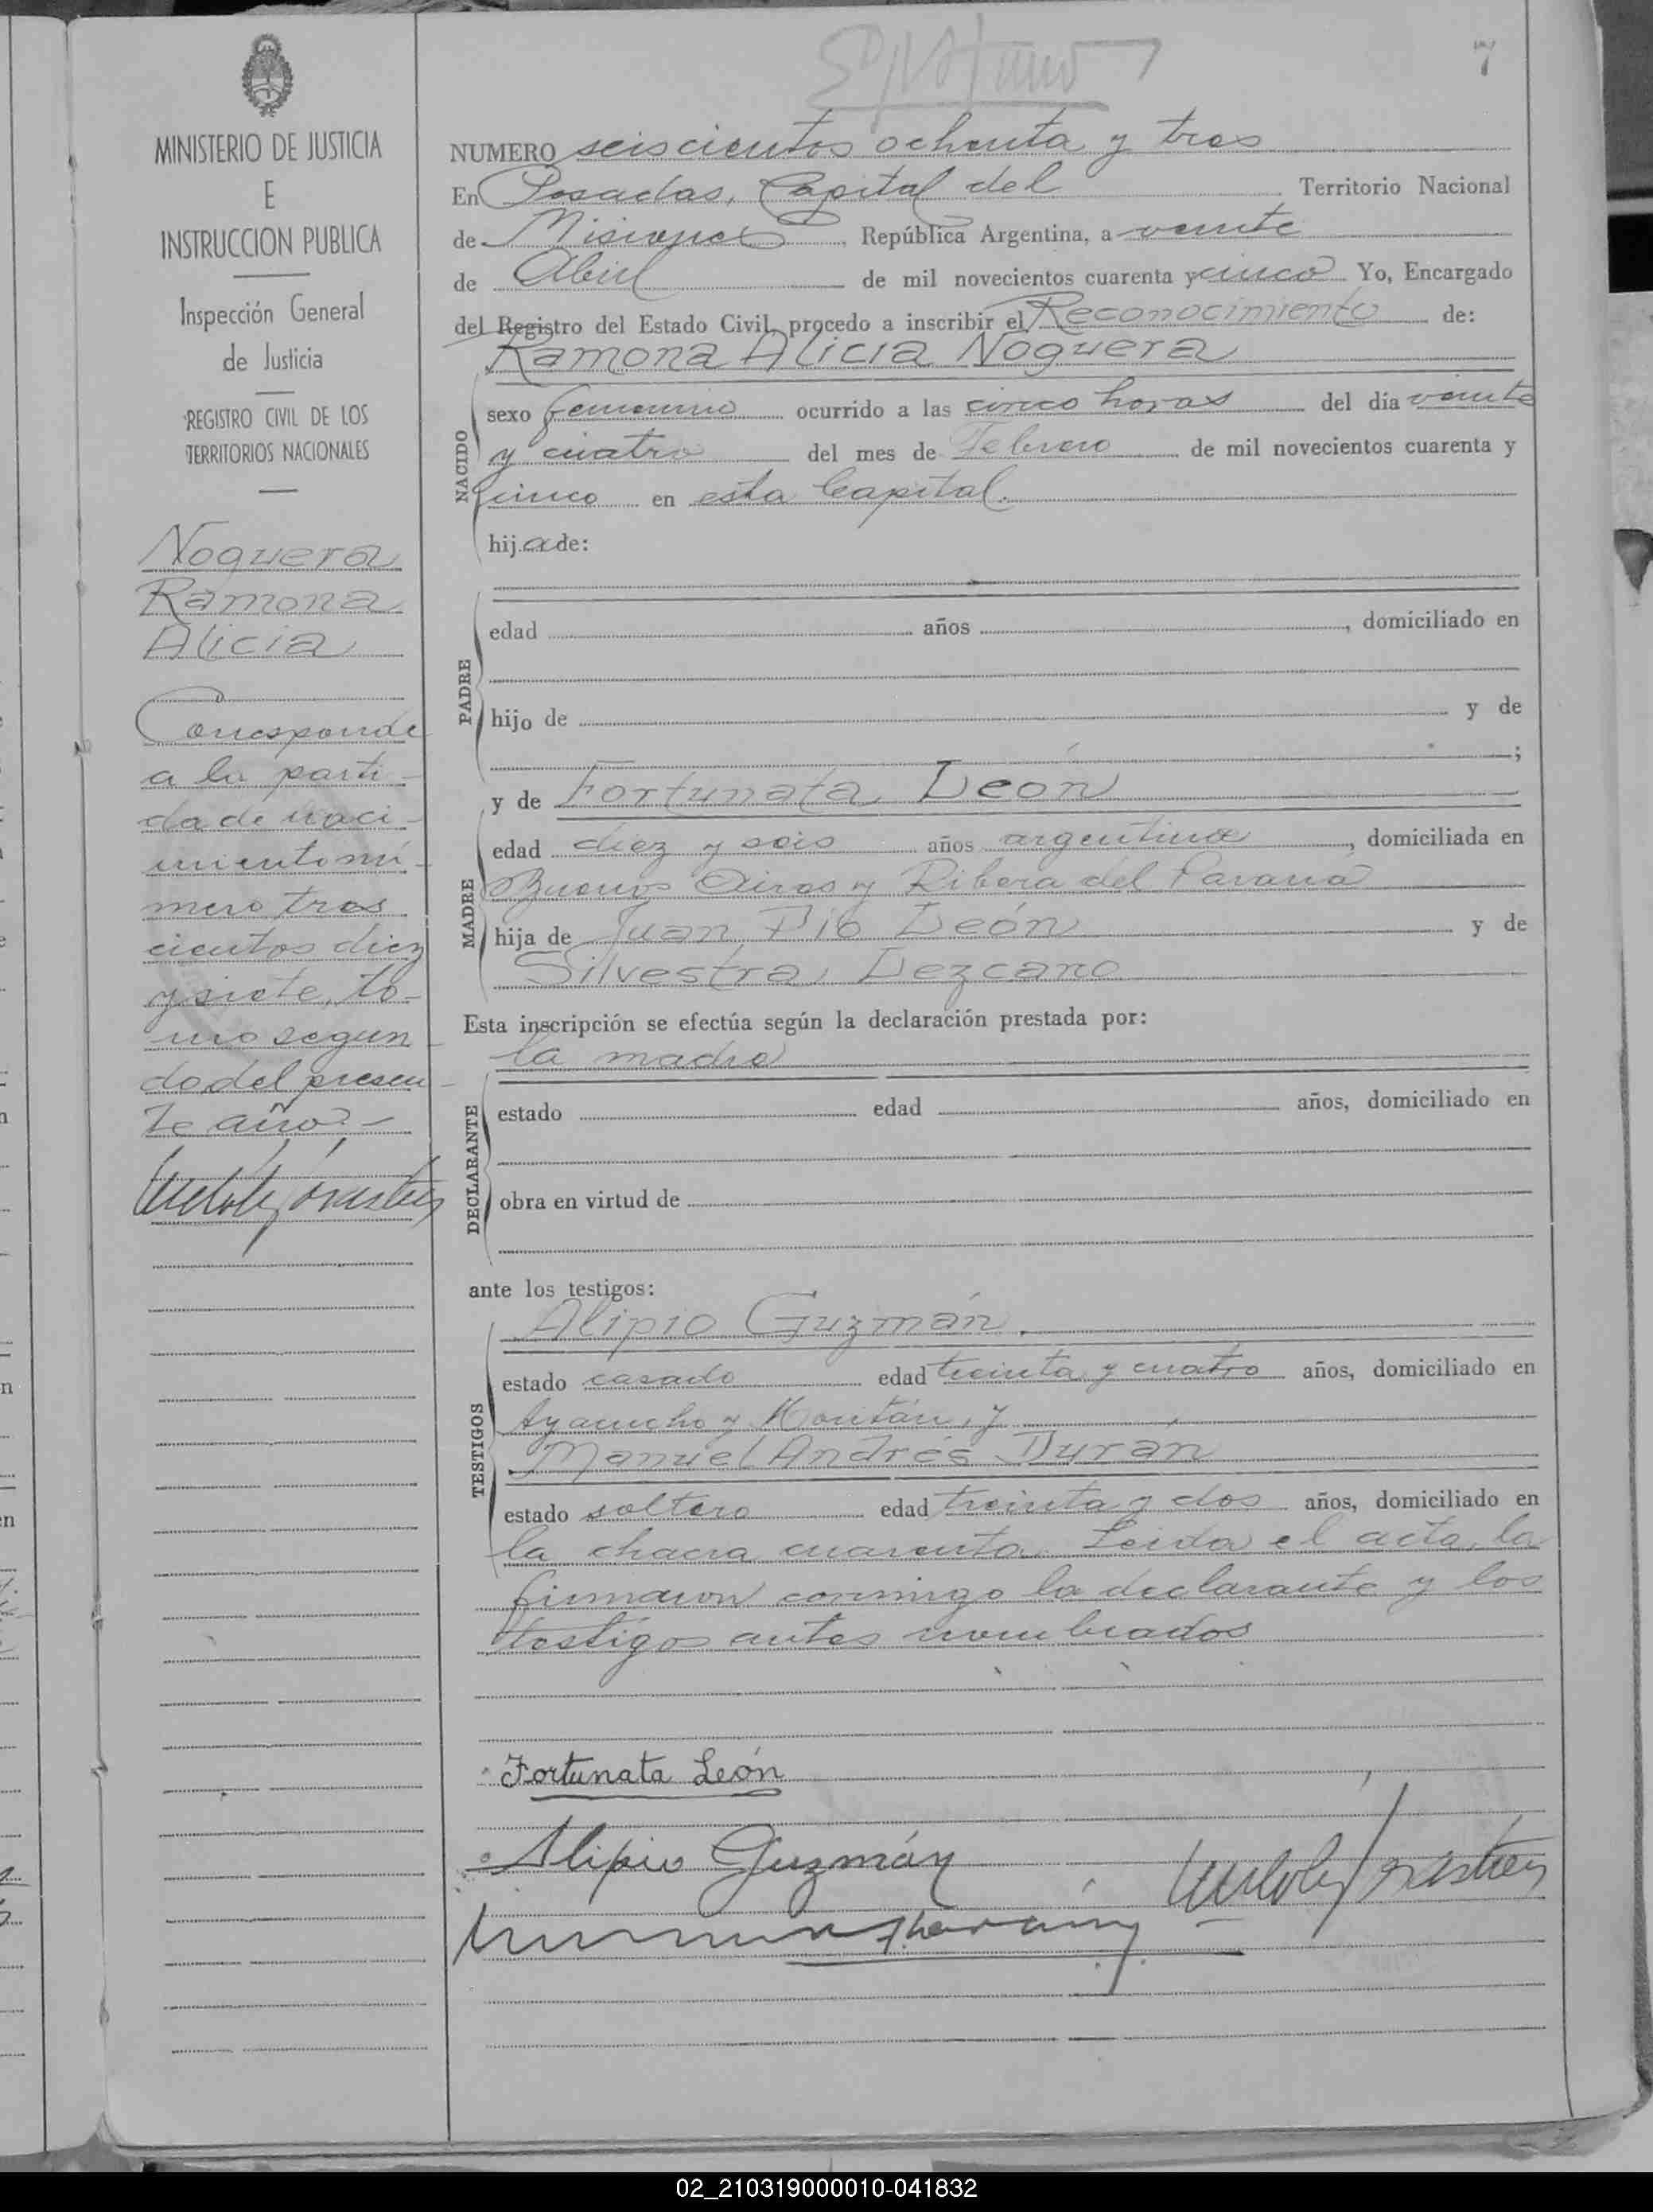 7
MINISTERIO DE JUSTICIA
E
INSTRUCCION PUBLICA
Inspección General
de Justicia
REGISTRO CIVIL DE LOS
TERRITORIOS NACIONALES
Noguera
Ramona
Alicia
Corresponde
a la parti-
da de naci-
miento nú-
mero tres
cientos diez
y siete, to-
mo segun-
do del presen-
te año.-
NUMERO seiscientos ochenta y tres
En Posadas, Capital del Territorio Nacional
de Misiones, República Argentina, a veinte
de Abril de mil novecientos cuarenta y cinco Yo, Encargado
del Registro del Estado Civil, procedo a inscribir el Reconocimiento de:
Ramona Alicia Noguera
NACIDO
sexo femenino ocurrido a las cinco horas del día veinte
y cuatro del mes de Febrero de mil novecientos cuarenta y
cinco en esta Capital.
hija de:
PADRE
edad años , domiciliado en
hijo de y de
;
y de Fortunata León
MADRE
edad diez y seis años argentina, domiciliada en
Buenos Aires y Ribera del Paraná
hija de Juan Pío León y de
Silvestra Lezcano
Esta inscripción se efectúa según la declaración prestada por:
la madre
DECLARANTE
estado edad años, domiciliado en
obra en virtud de
ante los testigos:
Alipio Guzmán.
TESTIGOS
estado casado edad treinta y cuatro años, domiciliado en
Ayacucho y , y
Manuel Andrés Durán
estado soltero edad treinta y dos años, domiciliado en
la chacra cuarenta. Leida el acta, la
firmaron conmigo la declarante y los
testigos antes nombrados
Fortunata León
Alipio Guzmán
02_210319000010-041832